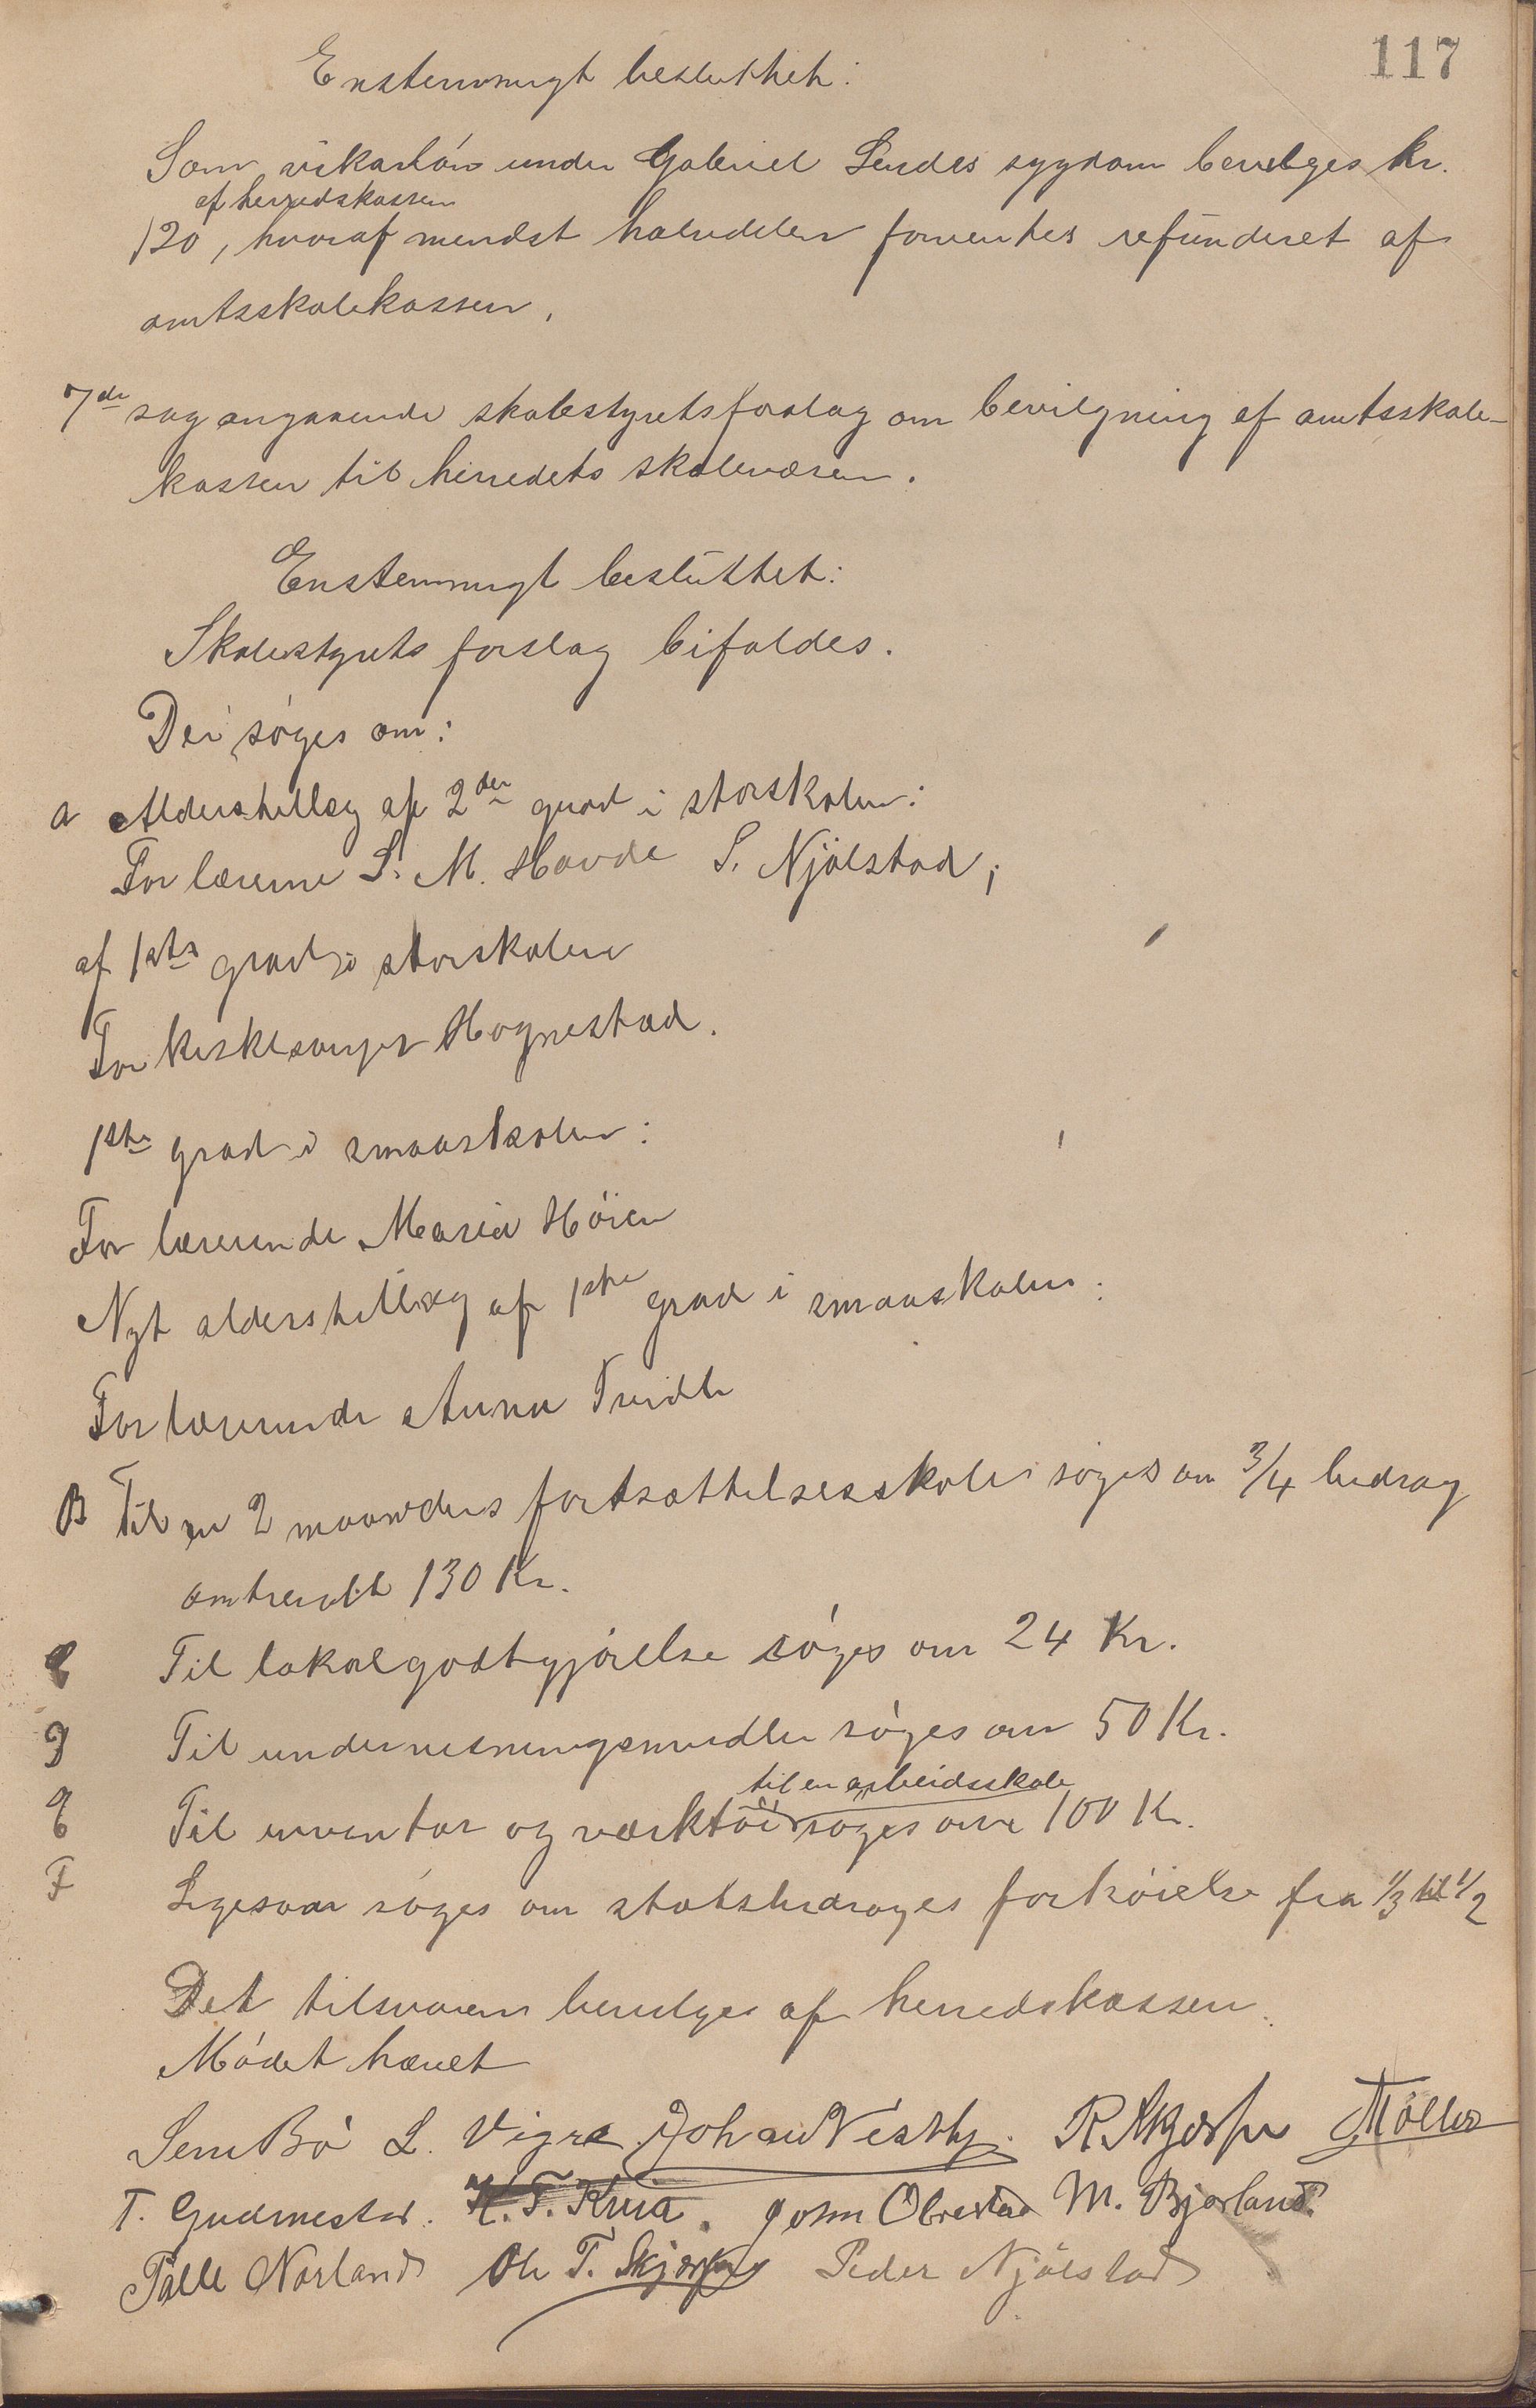 117
Enstemmigt besluttet:
Som vikarløn under Gabriel Lendes sygdom bevilges kr.
af herredskassen
120, hvoraf mindst halvdelen forventes refunderet af
amtsskolekassen.
7de sag angaaende skolestyrets forslag om bevilgning af amtsskole-
kassen til herredets skolevæsen.
Enstemmigt besluttet:
Skolestyrets forslag bifaldes.
Der søges om:
a Alderstillæg af 2den grad i storskolen:
For lærerne S. M. Havde S. Njølstad;
af 1ste grad i storskolen
For kirkesanger Hognestad.
1ste grad i smaaskolen:
For lærerinde Maria Höien
Nyt alderstillæg af 1ste grad i smaaskolen:
For lærerinde Anna Tveidte
B Til en 2 maaneders fortsættelsesskole søges om 3/4 bidrag
omtrendt 130 Kr.
C Til lokalgodtgjørelse søges om 24 Kr.
D Til undervisningsmidler søges om 50 Kr.
til en arbeidsskole
E Til inventar og værktöi søges om 100 Kr.
F Ligesaa søges om statsbidrages forhøielse fra 1/3 til 1/2
Det tilsvarende bevilges af herredskassen.
Mødet hævet
Sem Bö L. Vigre Johan Vestly. R. Skjærpe Möller
T. Gudmestad. H. T. Kvia. John Obrestad M. Bjorland.
Palle Norland Ole T. Skjærpe Peder Njölstad